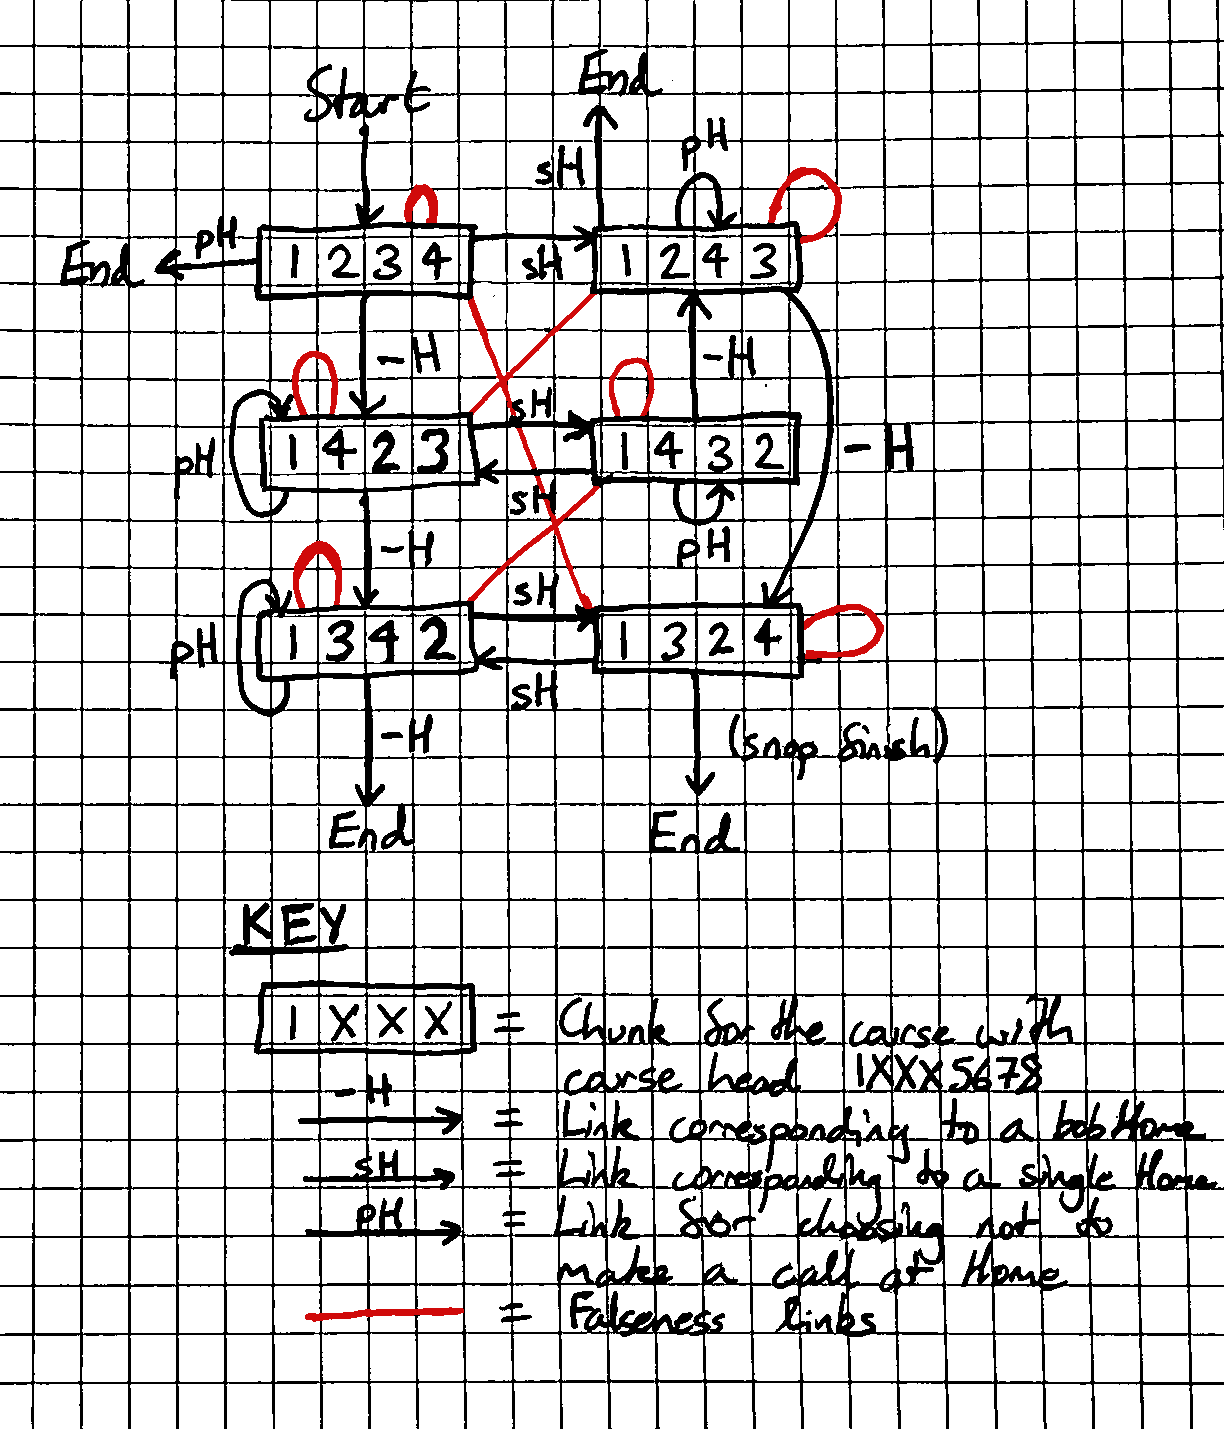 End
Start
pH
sH
pH
End
1 2 3 4
sH
1 2 4 3
-H
-H
sH
pH
1 4 2 3
1 4 3 2
-H
sH
-H
pH
sH
pH
1 3 4 2
1 3 2 4
sH
-H
(snap finish)
End
End
KEY
1 X X X = Chunk for the course with
course head 1XXX5678
-H = Link corresponding to a bob Home
sH = Link corresponding to a single Home
pH = Link for choosing not to
make a call at Home
= Falseness links